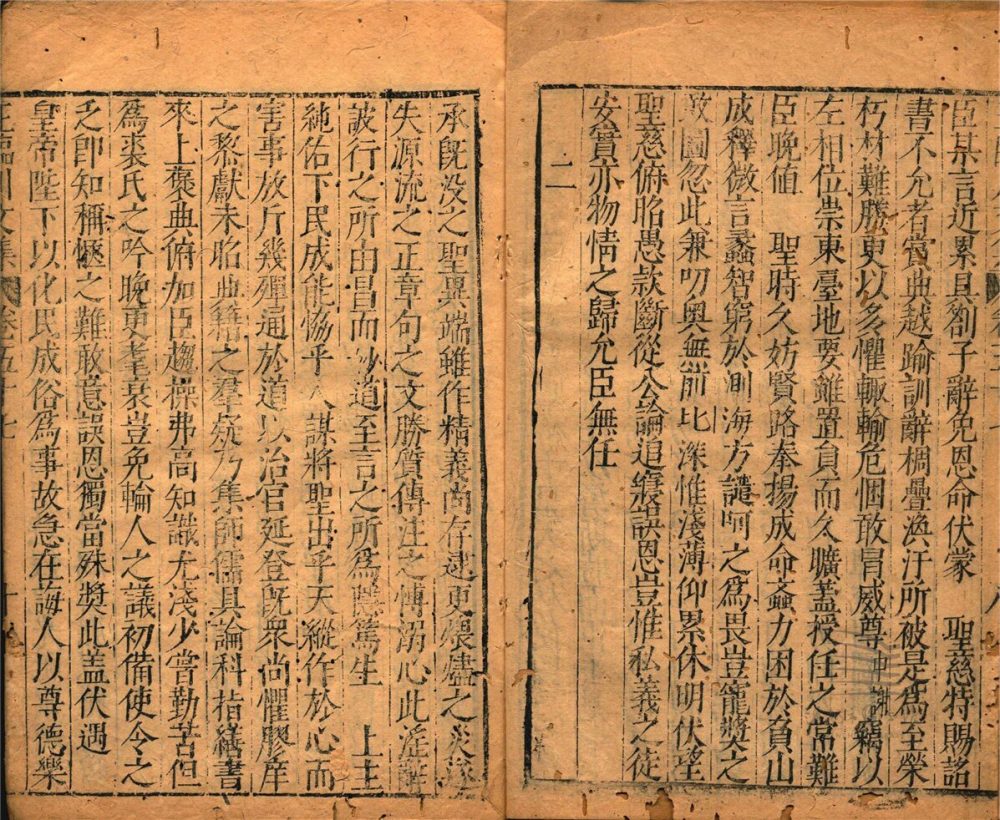 臣某言近累具劄子辭免恩命伏蒙　聖慈特賜詔
書不允者賞典越踰訓辭稠疊渙汗所被是爲至榮
朽材難勝更以多懼輙輸危悃敢冒威尊中謝　竊以
左相位崇東臺地要雖置員而久曠蓋授任之常難
臣晚值　聖時久妨賢路奉揚成命蚉力困於負山
成釋微言蠡智窮於測海方譴呵之爲畏豈寵奬之
敢圖忽此兼叨奥無前比深惟淺薄仰累休明伏望
聖慈俯昭愚款斷從公論追寢誤恩豈惟私義之徒
安實亦物情之歸允臣無任
二
承既没之聖異端雖作精義尚存逮更煨燼之災遂
失源流之正章句之文勝質傳注之博溺心此淫辭
詖行之所由昌而妙道至言之所爲隱篤生　上主
純佑下民成能協乎人謀將聖出乎天縱作於心而
害事放斥幾殫通於道以治官延登既衆尚懼膠庠
之黎獻未昭典籍之羣疑乃集師儒具論科指繕書
來上褒典俯加臣趨操弗高知識尤淺少嘗勤苦但
爲裘氏之吟晚更耄衰豈免輪人之議初備使令之
乏即知稱愜之難敢意誤恩獨當殊奬此盖伏遇
皇帝陛下以化民成俗爲事故急在誨人以尊德樂